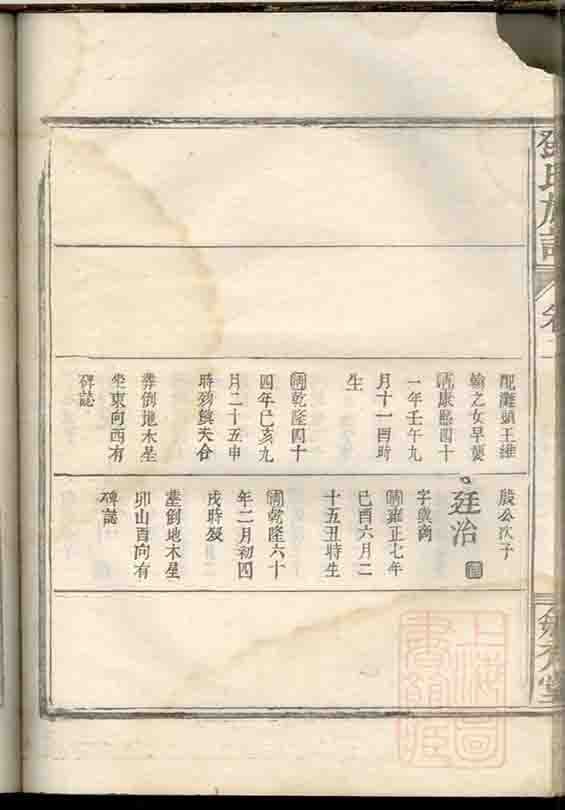 鄧氏族譜
卷二
配灘頭王維
翰之女早喪
清康熙四十
一年壬午九
月十一酉時
生
清乾隆四十
四年己亥九
月二十五申
時歿與夫合
葬倒地木星
坐東向西有
碑誌
殷公次子
廷治
字與商
清雍正七年
己酉六月二
十五丑時生
清乾隆六十
年二月初四
戌時歿
葬倒地木星
卯山酉向有
碑誌
堂
上海圖書館藏